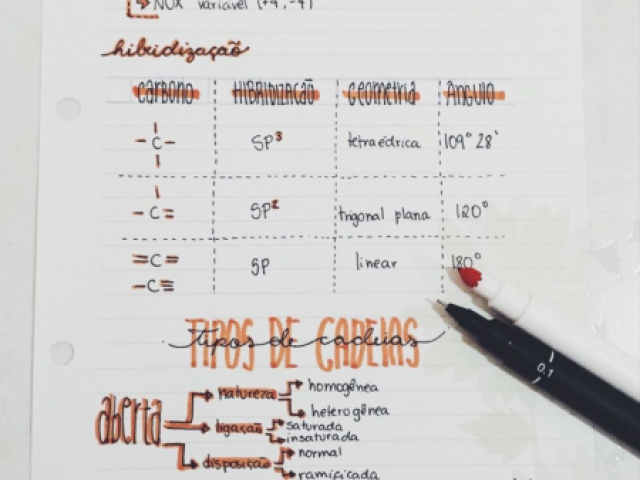 NOX variável (+4,-4)
hibridização
carbono HIBRIDIZAÇÃO Geometria ÂNGULO
-C- SP³ tetraédrica 109° 28'
-C= SP² trigonal plana 120°
=C= SP linear 180°
-C≡
TIPOS DE CADEIAS
tipos de cadeias
0.1
natureza homogênea
heterogênea
aberta ligação saturada
insaturada
disposição normal
ramificada